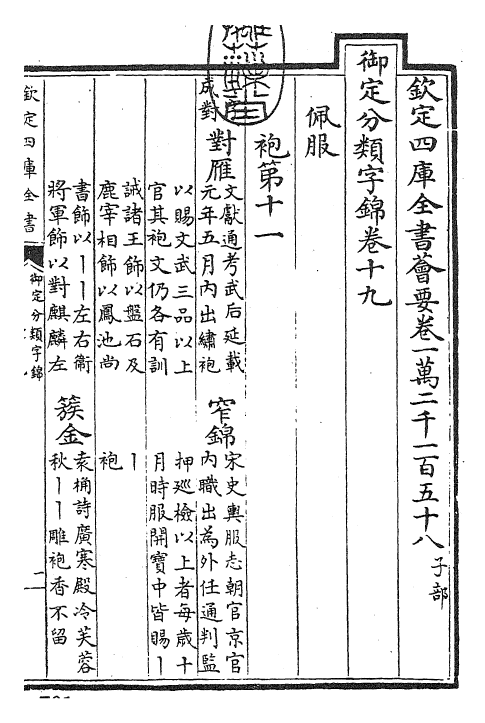 欽定四庫全書薈要卷一萬二千一百五十八 子部
御定分類字錦卷十九
佩服
袍第十一
成對
對雁
文獻通考武后延載
元年五月内出繡袍
以賜文武三品以上
官其袍文仍各有訓
誡諸王飾以盤石及
鹿宰相飾以鳳池尚
書飾以丨丨左右衛
將軍飾以對麒麟左
窄錦
宋史輿服志朝官京官
内職出為外任通判監
押廵檢以上者每歲十
月時服開寶中皆賜丨
丨
袍
簇金
袁桷詩廣寒殿冷芙蓉
秋丨丨雕袍香不留
欽定四庫全書
御定分類字錦